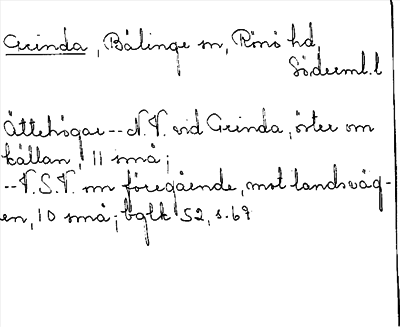 Grinda, Bälinge sn, Rönö hd,
Söderml.l
Ättehögar -- N.V. vid Grinda, öster om
källan, 11 små;
-- V.S.V. om föregående, mot landsväg-
en, 10 små; bglk 52, s. 69